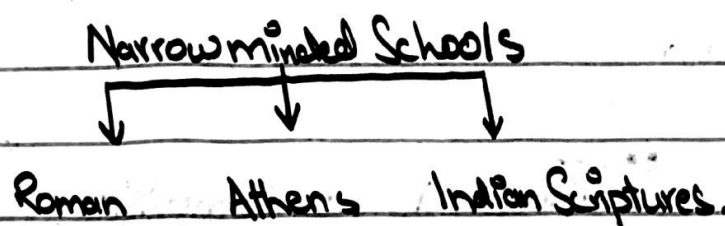 Narrow minded Schools
Roman Athens Indian Scriptures.